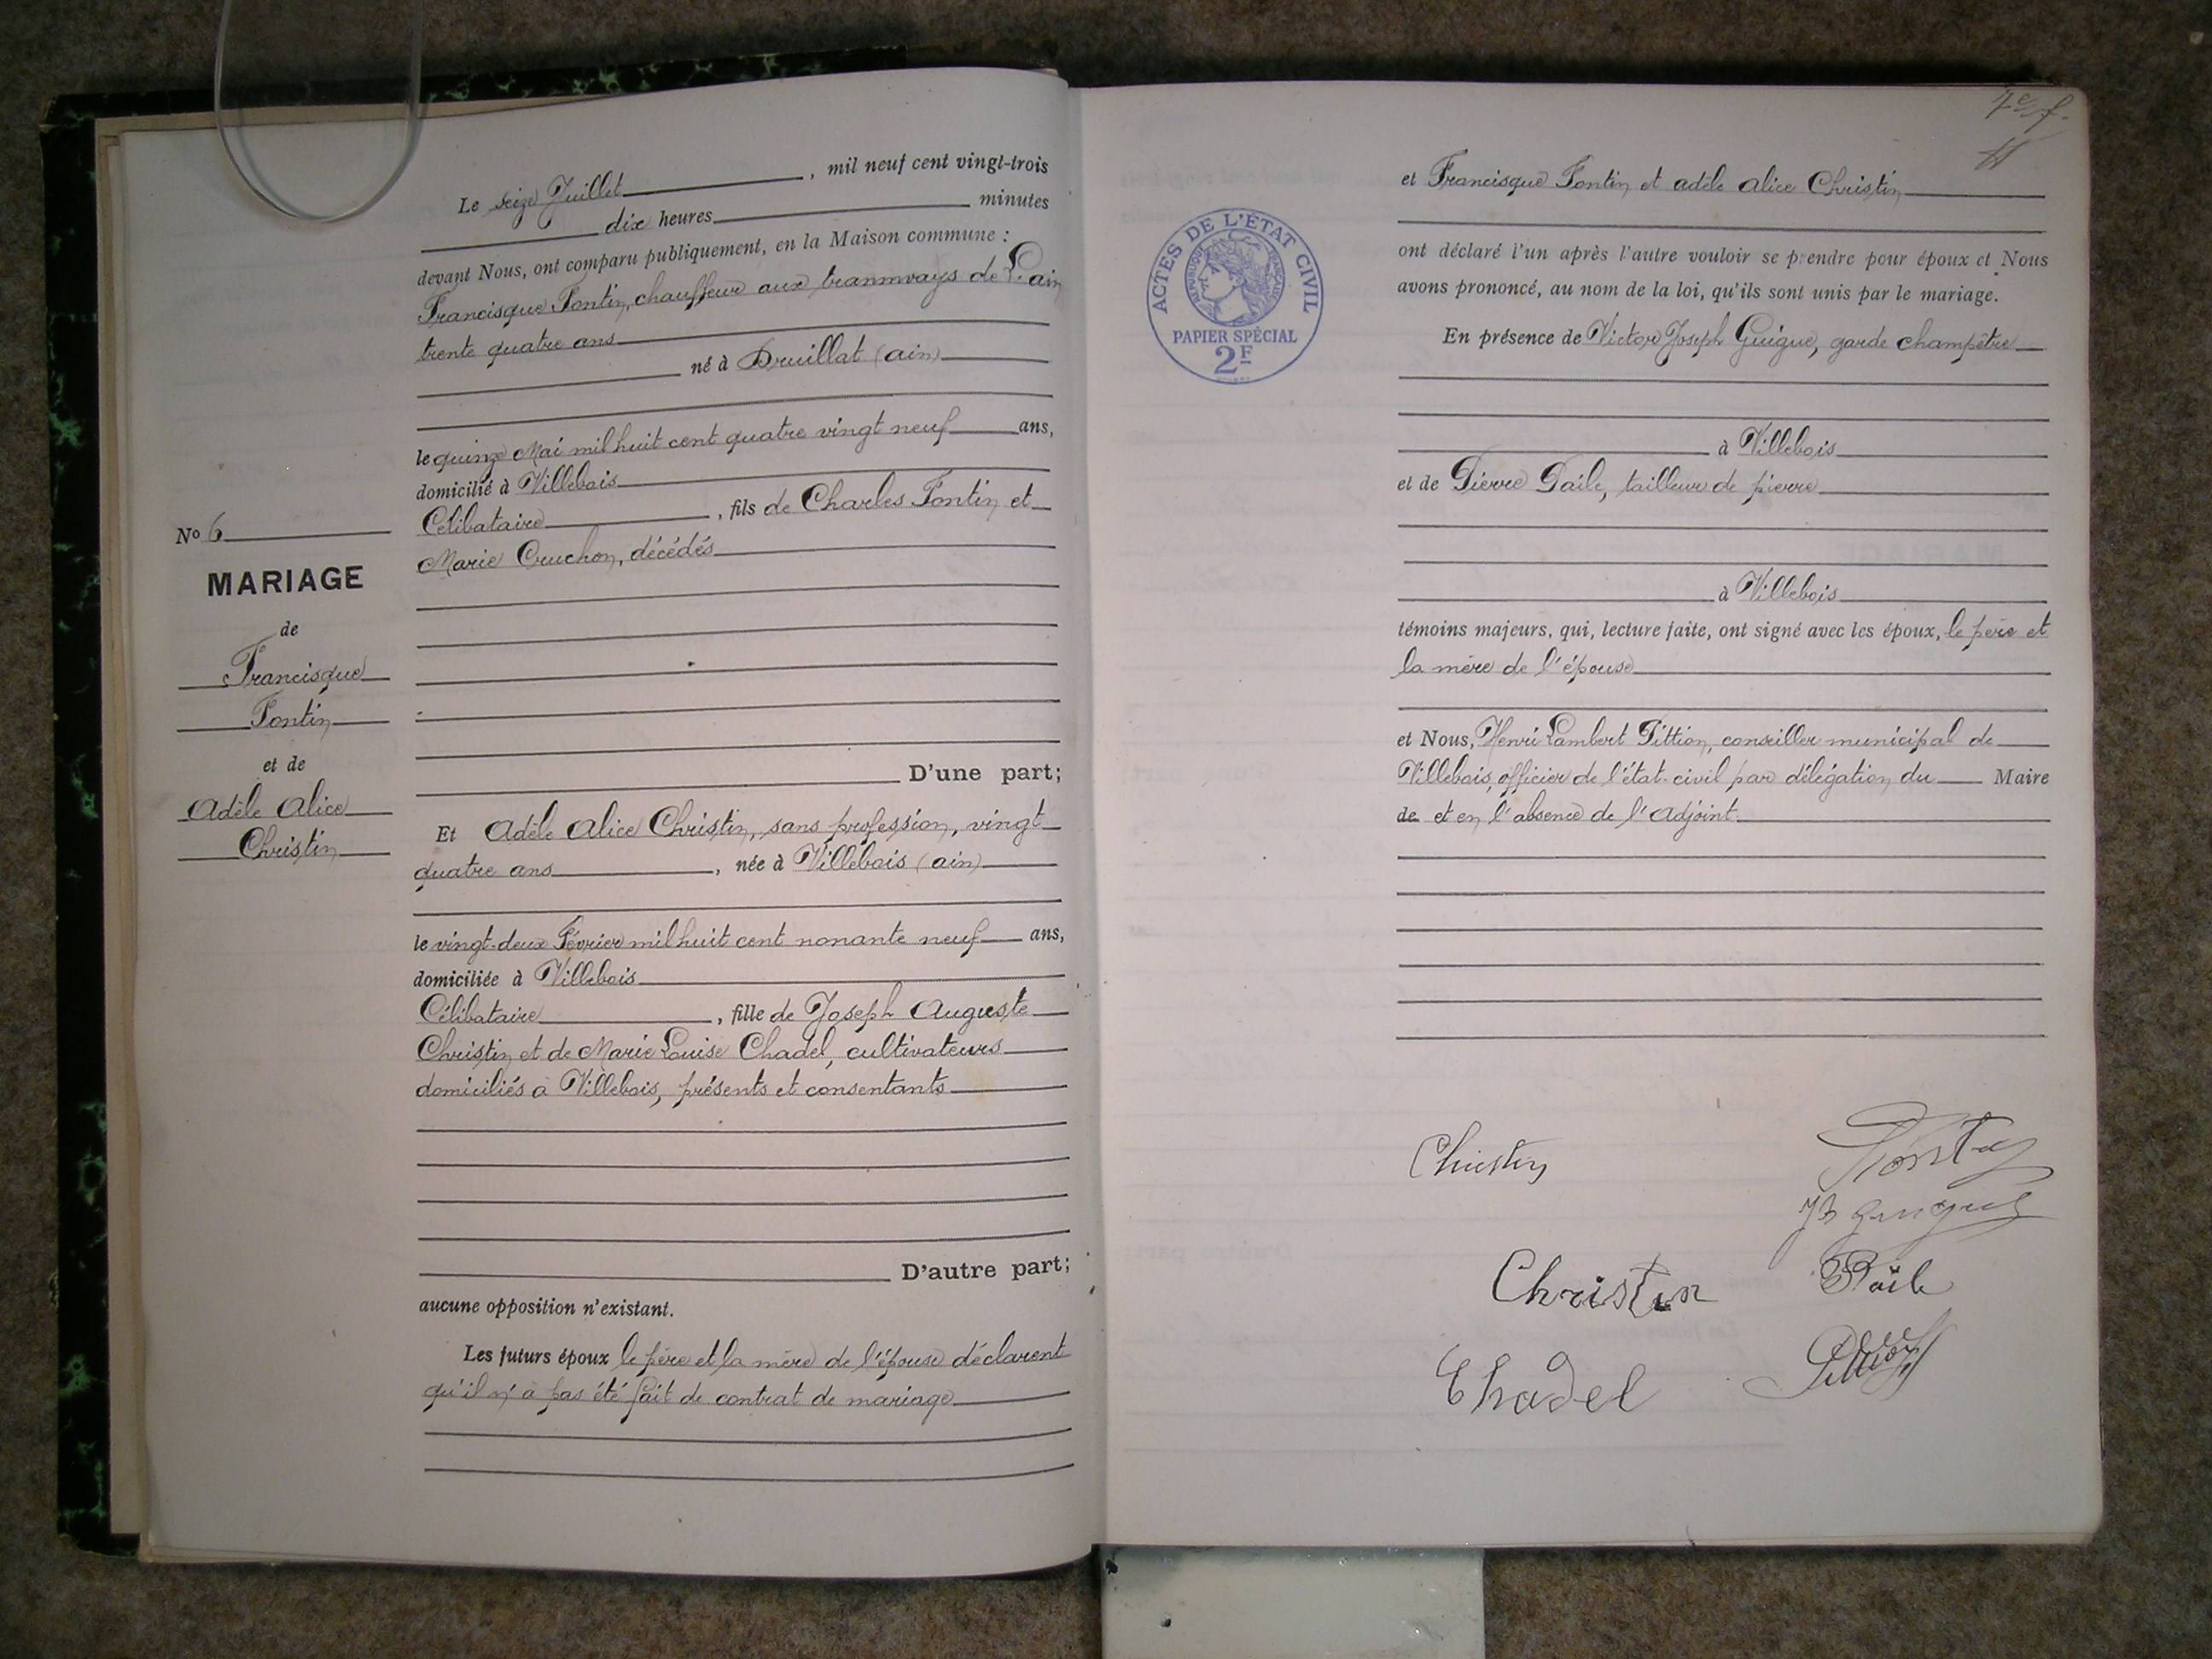 Le seize Juillet, mil neuf cent vingt-trois
dix heures minutes
devant Nous, ont comparu publiquement, en la Maison commune :
Francisque Fontin, chauffeur aux tramways de L'ain
trente quatre ans
né à Druillat (ain)
le quinze Mai mil huit cent quatre vingt neuf ans,
domicilié à Villebois
Célibataire, fils de Charles Fontin et
Marie Cruchon, décédés
No 6
MARIAGE
de
Francisque
Fontin
et de
Adèle Alice
Christin
D'une part;
Et Adèle Alice Christin, sans profession, vingt
quatre ans, née à Villebois (ain)
le vingt-deux Février mil huit cent nonante neuf ans,
domiciliée à Villebois
Célibataire, fille de Joseph Auguste
Christin et de Marie Louise Chadel, cultivateurs
domiciliés à Villebois, présents et consentants
D'autre part;
aucune opposition n'existant.
Les futurs époux le père et la mère de l'épouse déclarent
qu'il n'a pas été fait de contrat de mariage
11
et Francisque Fontin et adèle alice Christin
ont déclaré l'un après l'autre vouloir se prendre pour époux et Nous
avons prononcé, au nom de la loi, qu'ils sont unis par le mariage.
ACTES DE L'ÉTAT CIVIL
RÉPUBLIQUE FRANÇAISE
PAPIER SPÉCIAL
2F
En présence de Victor Joseph Guigue, garde champêtre
à Villebois
et de Pierre Paile, tailleur de pierre
à Villebois
témoins majeurs, qui, lecture faite, ont signé avec les époux, le père et
la mère de l'épouse
et Nous, Henri Lambert Pittion, conseiller municipal de
Villebois, officier de l'état-civil par délégation du Maire
de et en l'absence de l'Adjoint
Christin
Christin
Paile
Chadel